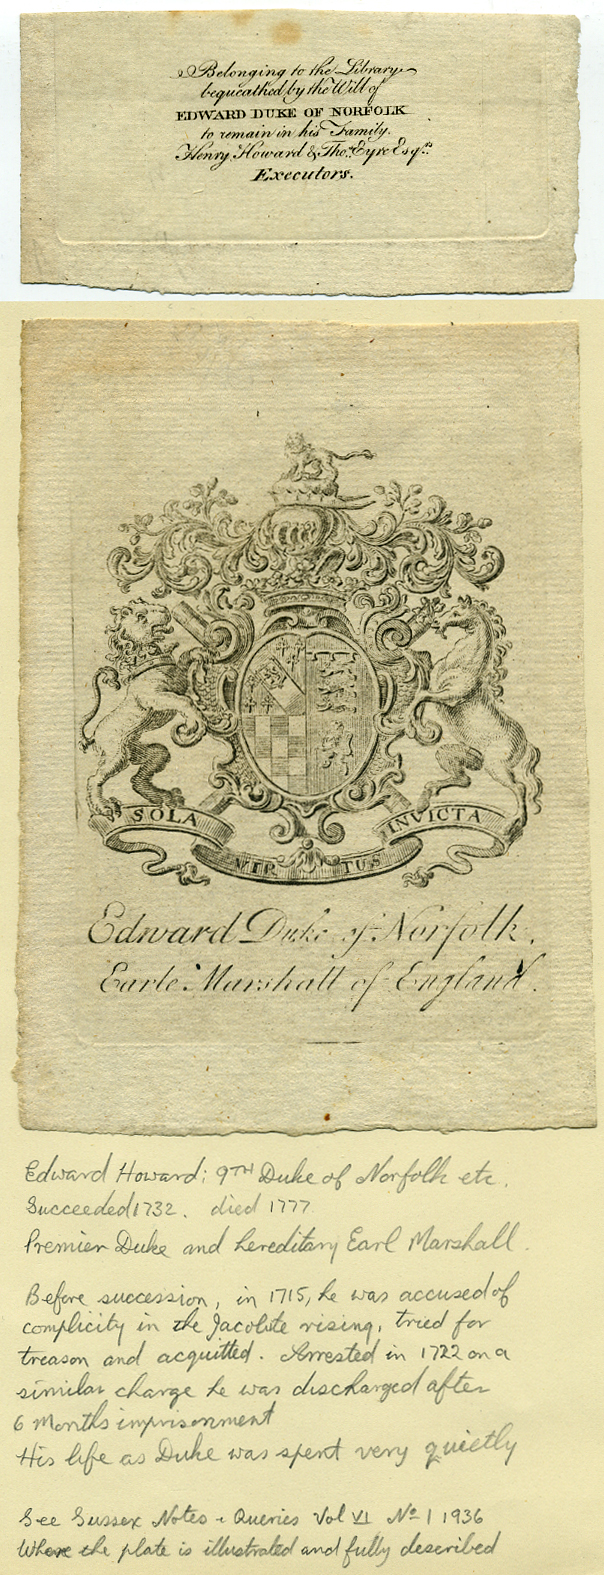 Belonging to the Library
bequeathed by the Will of
EDWARD DUKE OF NORFOLK
to remain in his Family.
Henry Howard & Thos. Eyre Esqrs.
Executors.
SOLA VIRTUS INVICTA
Edward Duke of Norfolk.
Earle Marshall of England.
Edward Howard: 9TH Duke of Norfolk etc.
Succeeded 1732. died 1777
Premier Duke and hereditary Earl Marshall.
Before succession, in 1715, he was accused of
complicity in the Jacobite rising, tried for
treason and acquitted. Arrested in 1722 on a
similar charge he was discharged after
6 Months imprisonment
His life as Duke was spent very quietly
See Sussex Notes & Queries Vol VI No 1 1936
Where the plate is illustrated and fully described